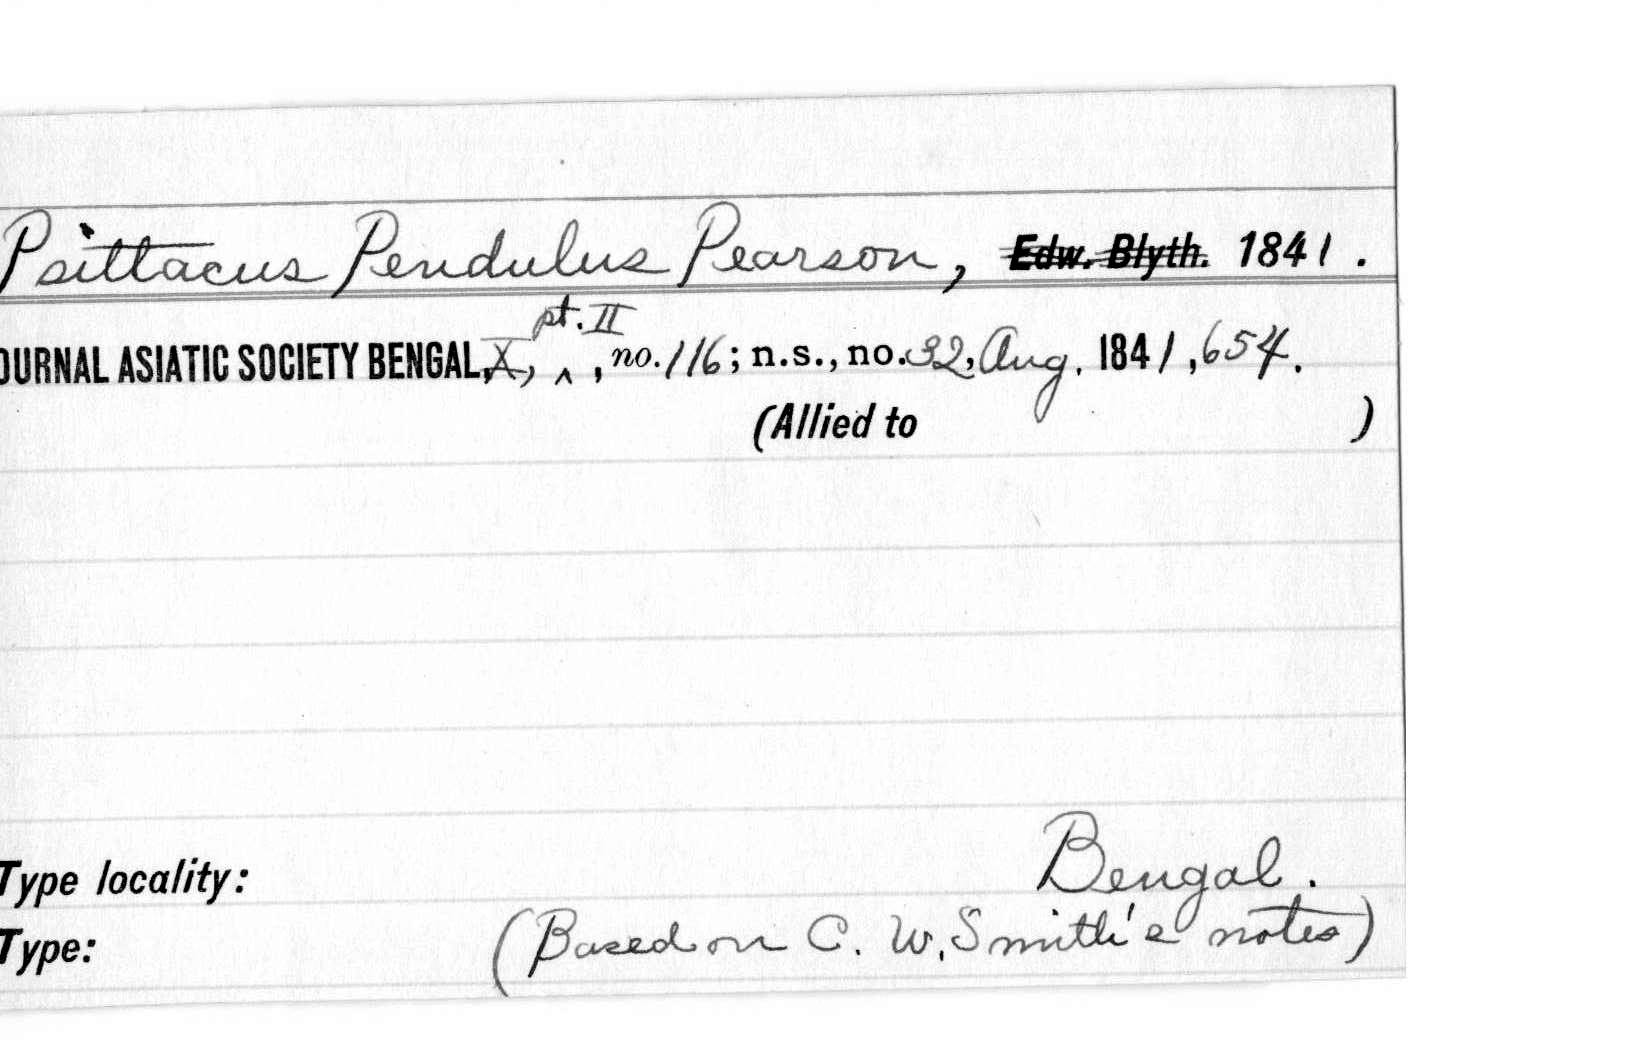 Psittacus Pendulus Pearson, Edw. Blyth. 1841.
pt. II
OURNAL ASIATIC SOCIETY BENGAL, X, ^ , no. 116; n.s., no. 32, Aug. 1841, 654.
(Allied to )
Type locality: Bengal.
Type: (Based on C. W. Smith's notes)